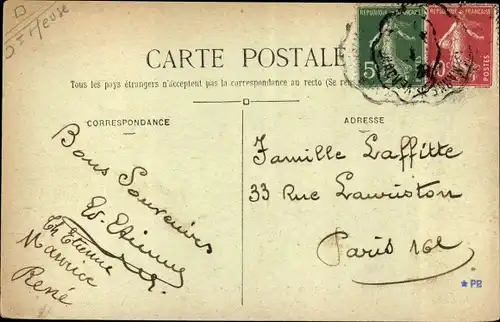 Dt Meuse
CARTE POSTALE
Tous les pays étrangers n'acceptent pas la correspondance au recto (Se re
CORRESPONDANCE
ADRESSE
REPUBLIQUE FRANÇAISE
5
POSTES
10
Bons Souvenirs
Et. Etienne
Ch Etienne
Maurice
René
Famille Laffitte
33 Rue Lauriston
Paris 16e
★ PB